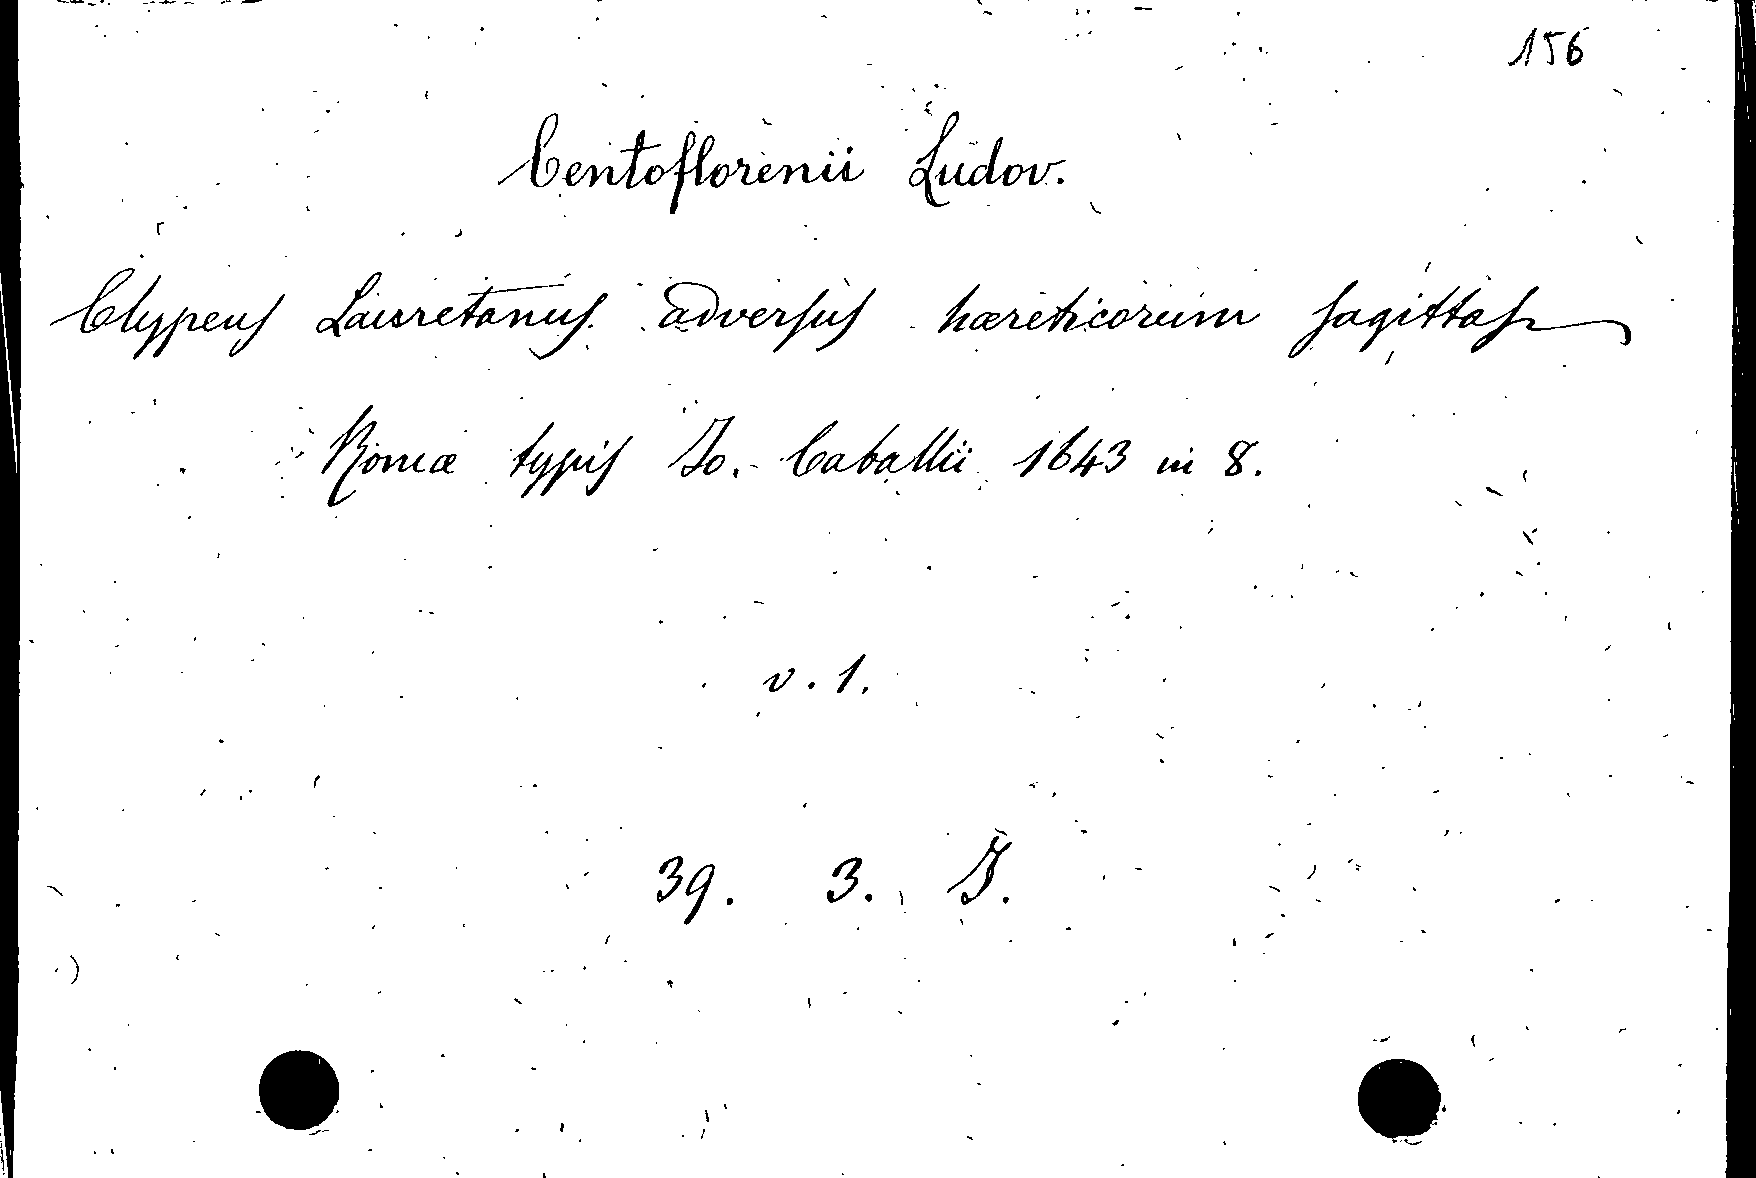 156
Centoflorenii Ludov.
Clypeus Lauretanus adversus hæreticorum sagittas
Romæ typis Io. Caballii 1643 in 8.
v. 1.
39. 3. I.